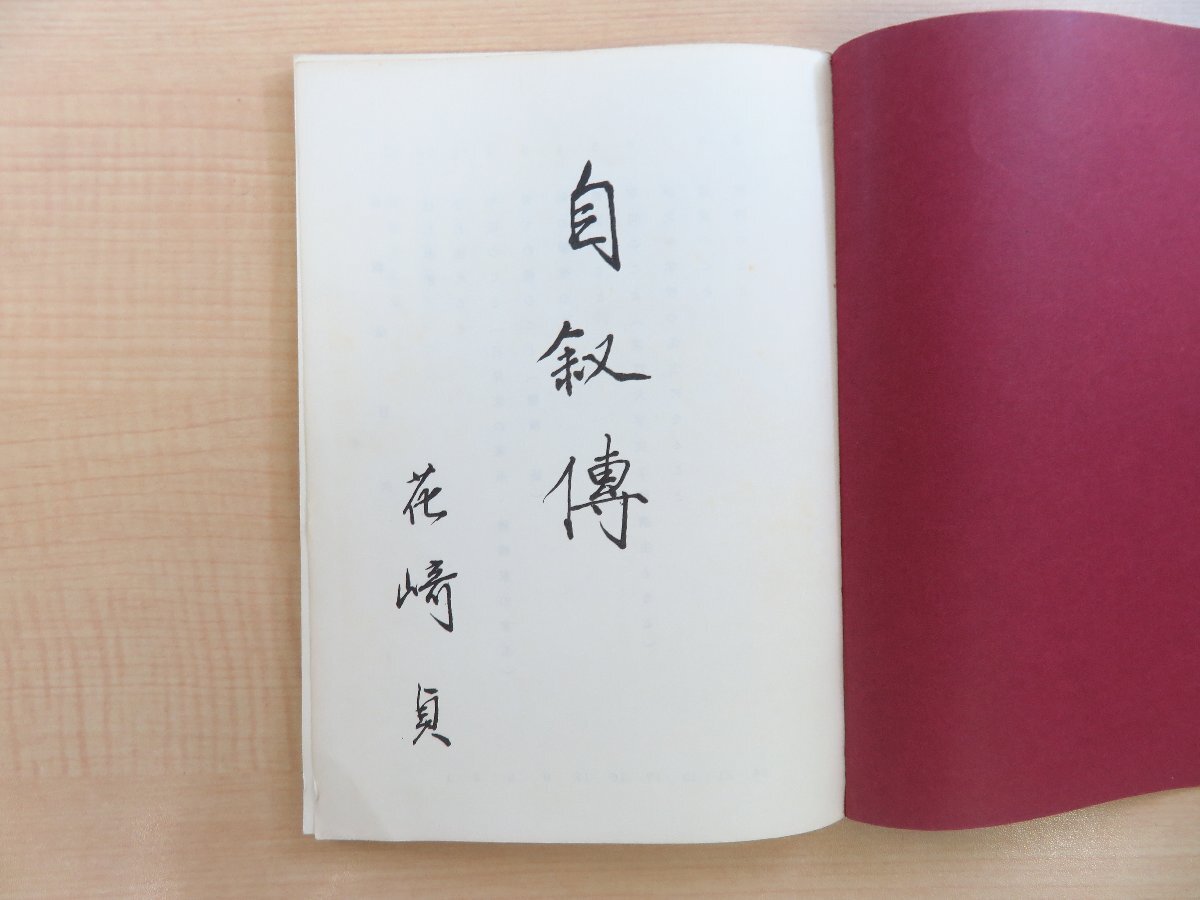 自叙傳
花﨑貞